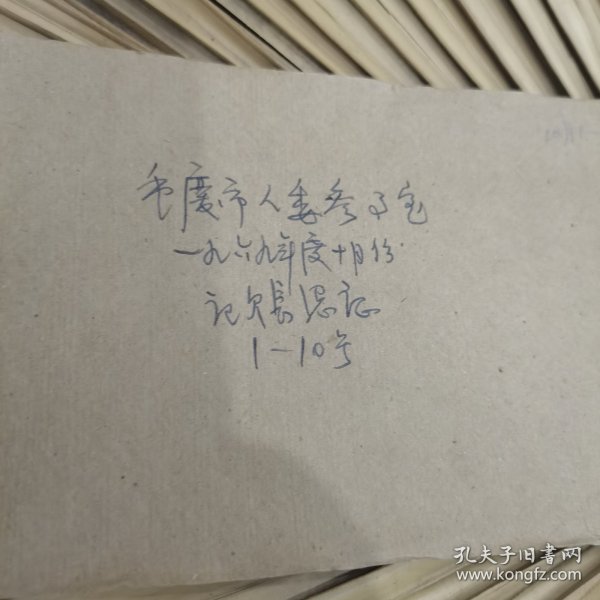 重庆市人委参事室
一九六九年度十月份
记欠長凭证
1—10号
孔夫子旧書网
www.kongfz.com